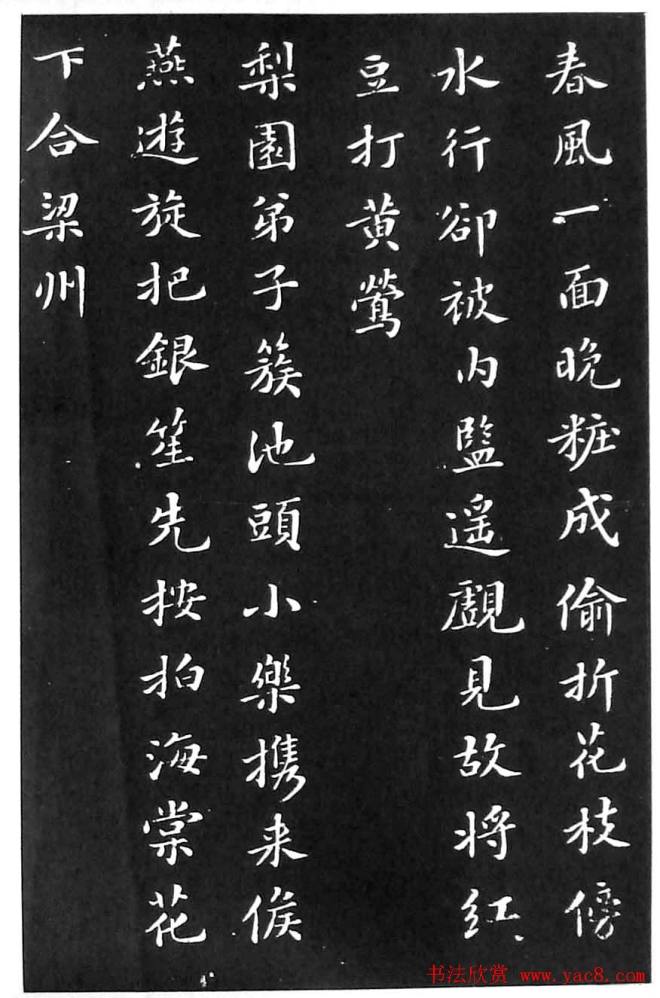 春風一面晚粧成偷折花枝傍
水行卻被内監遥覰見故將紅
豆打黄鶯
梨園弟子簇池頭小樂携来俟
燕遊旋把銀笙先按拍海棠花
下合梁州
书法欣赏 www.yac8.com